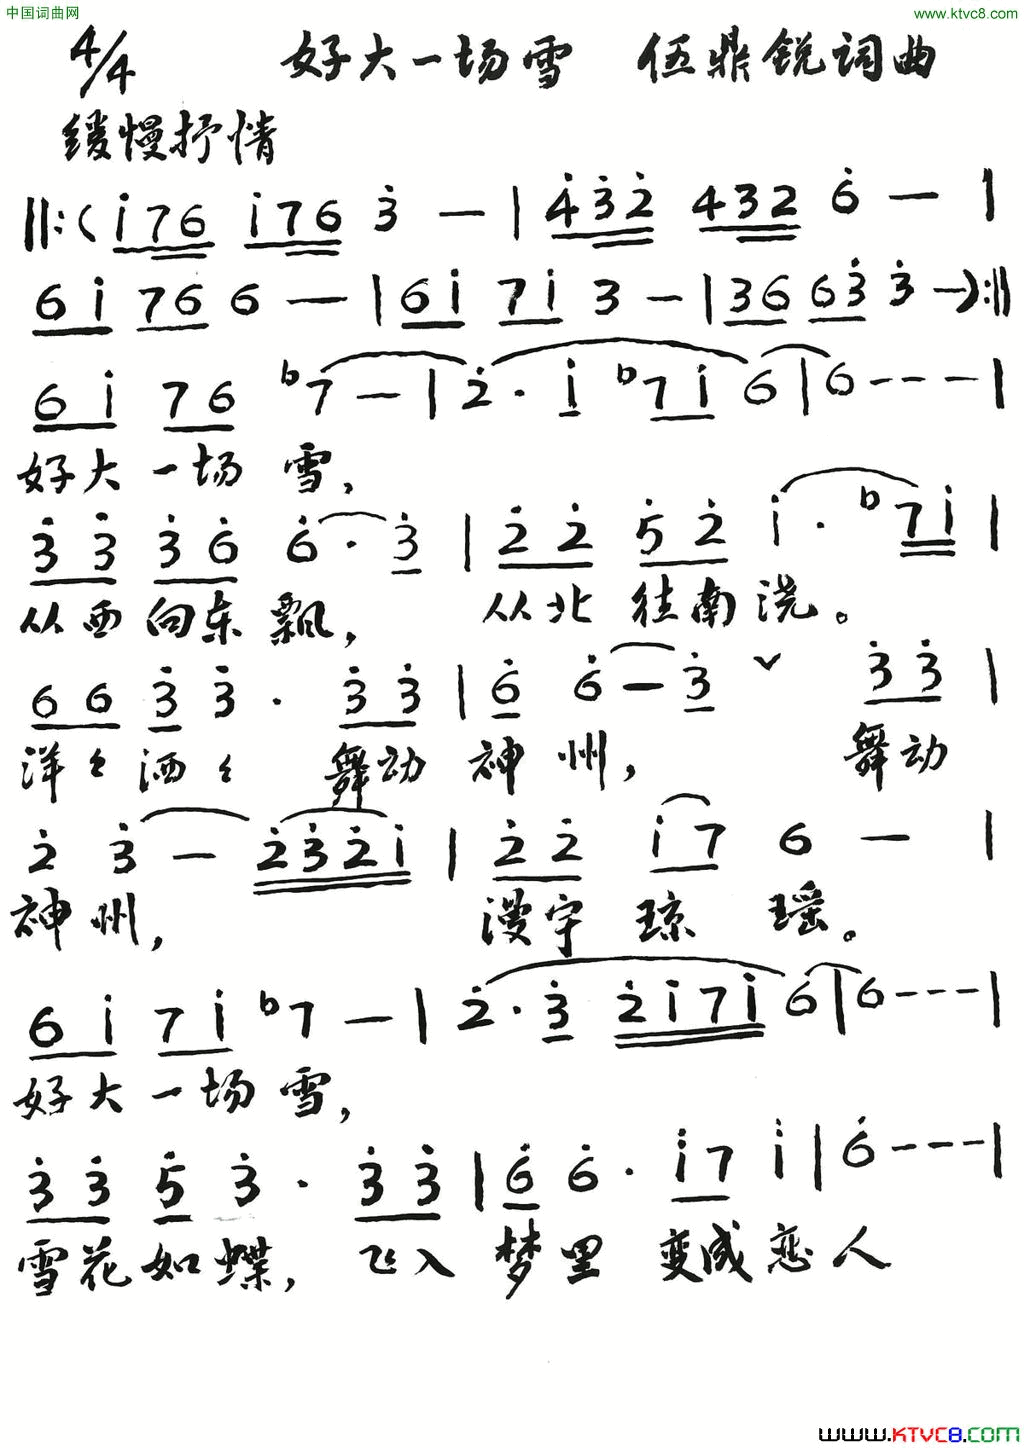 中国词曲网 www.ktvc8.com
4/4 好大一场雪 伍鼎锐词曲
缓慢抒情
‖:( i̇76 i̇76 3̇ — | 4̇3̇2̇ 432 6̇ — |
6i̇ 76 6 — | 6i̇ 7i̇ 3 — | 36 63̇ 3̇ — ):‖
6i̇ 76 ♭7 — | 2̇· i̇ ♭7i̇ 6 | 6 - - - |
好大一场雪，
3̇3̇ 3̇6̇ 6̇· 3̇ | 2̇2̇ 5̇2̇ i̇· ♭7i̇ |
从西向东飘， 从北往南浇。
66 3̇ 3̇· 3̇3̇ | 6̇ 6̇ — 3̇ ∨ 3̇3̇ |
洋々洒々 舞动神州， 舞动
2̇ 3̇ — 2̇3̇2̇i̇ | 2̇2̇ i̇7 6 — |
神州， 漫宇琼瑶。
6i̇ 7i̇ ♭7 — | 2̇· 3̇ 2̇i̇7i̇ 6̇ | 6 - - - |
好大一场雪，
3̇3̇ 5̇ 3̇· 3̇3̇ | 6̇ 6̇· i̇7 i̇ | 6̇ - - - |
雪花如蝶， 飞入梦里变成恋人
www.KTVC8.com